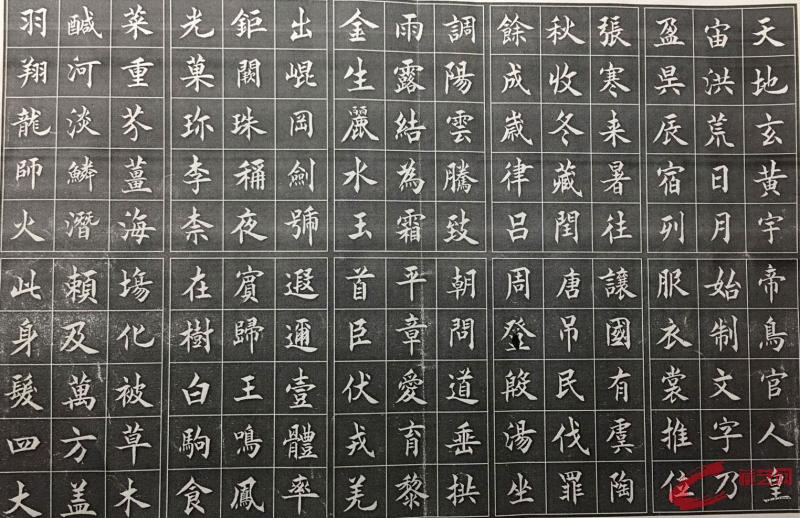 天地玄黃宇
宙洪荒日月
盈昃辰宿列
張寒来暑往
秋收冬藏閏
餘成歲律吕
調陽雲騰致
雨露結為霜
金生麗水玉
出崐岡劍號
鉅闕珠稱夜
光菓珎李柰
菜重芥薑海
鹹河淡鱗潛
羽翔龍師火
帝鳥官人皇
始制文字乃
服衣裳推位
讓國有虞陶
唐吊民伐罪
周發殷湯坐
朝問道垂拱
平章愛育黎
首臣伏戎羌
遐邇壹體率
賓歸王鳴鳳
在樹白駒食
塲化被草木
賴及萬方盖
此身髮四大